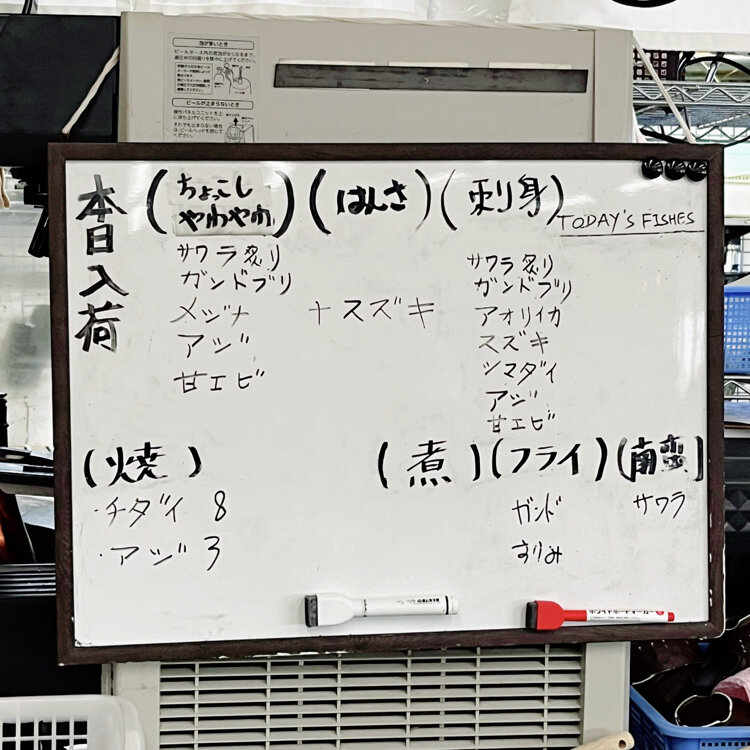 泡が多いとき
ビールが止まらないとき
本日入荷
(ちょっこし
やわやわ)
サワラ炙り
ガンドブリ
メジナ
アジ
甘エビ
(はんさ)
+スズキ
(刺身)
TODAY'S FISHES
サワラ炙り
ガンドブリ
アオリイカ
スズキ
シマダイ
アジ
甘エビ
(焼)
・チダイ 8
・アジ 3
(煮)
(フライ)
ガンド
すりみ
(南蛮)
サワラ
ホワイトボードマーカー